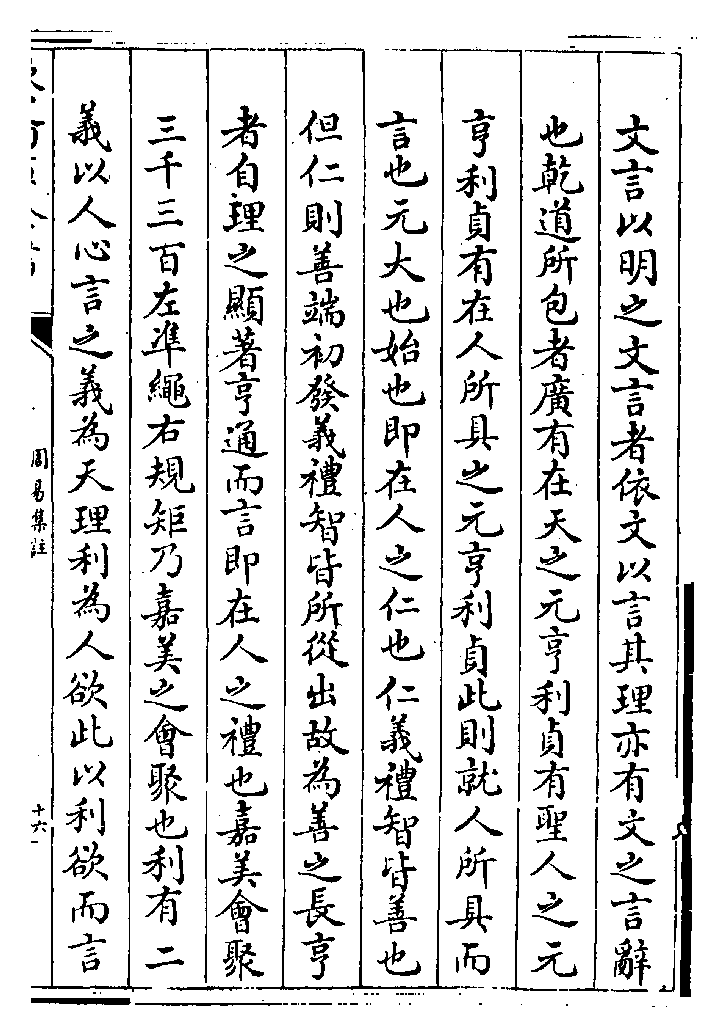 文言以明之文言者依文以言其理亦有文之言辭
也乾道所包者廣有在天之元亨利貞有聖人之元
亨利貞有在人所具之元亨利貞此則就人所具而
言也元大也始也即在人之仁也仁義禮智皆善也
但仁則善端初發義禮智皆所從出故為善之長亨
者自理之顯著亨通而言即在人之禮也嘉美會聚
三千三百左準繩右規矩乃嘉美之會聚也利有二
義以人心言之義為天理利為人欲此以利欲而言
周易集註
十六